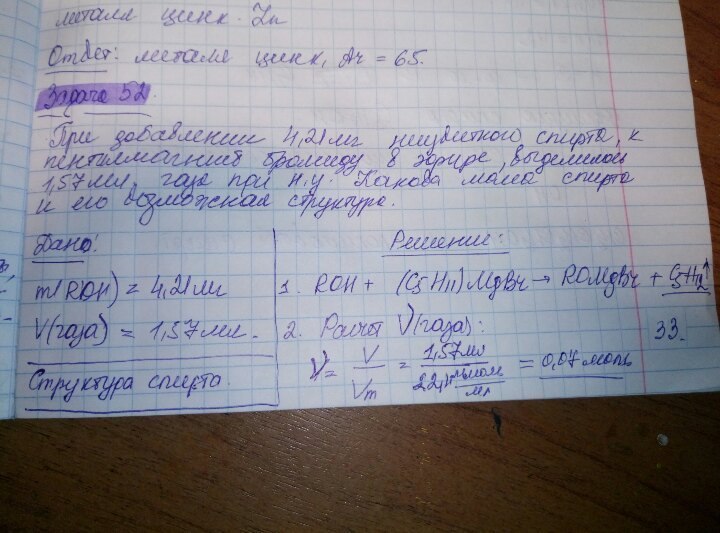 металл цинк. Zn
Ответ: металл цинк, Ar = 65.
Задача 52.
При добавлении 4,21 мг неизвестного спирта, к
пентилмагний бромиду в эфире, выделилось
1,57 мл, газа при н.у. Какова масса спирта
и его возможная структура.
Дано:
Решение:
m(ROH) = 4,21 мг
1. ROH + (C5H11)MgBr → ROMgBr + C5H12↑
V(газа) = 1,57 мл.
2. Расчёт V(газа):
33.
Структура спирта.
V = V/Vm = 1,57 мл / 22,4 = 0,07 моль